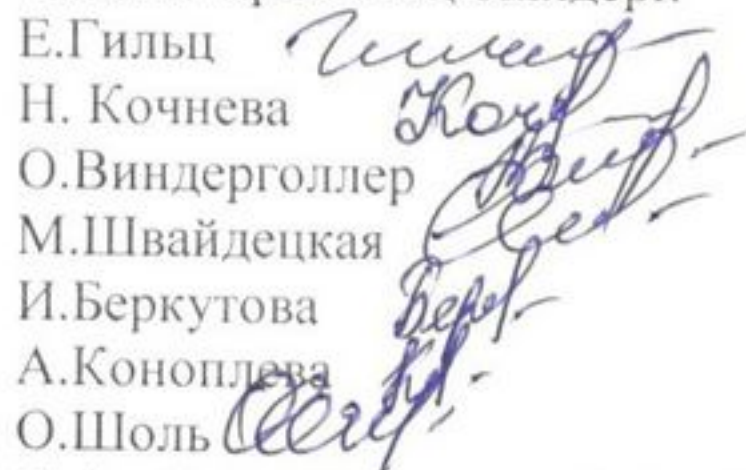 Е.Гильц
Н. Кочнева
О.Виндерголлер
М.Швайдецкая
И.Беркутова
А.Коноплева
О.Шоль